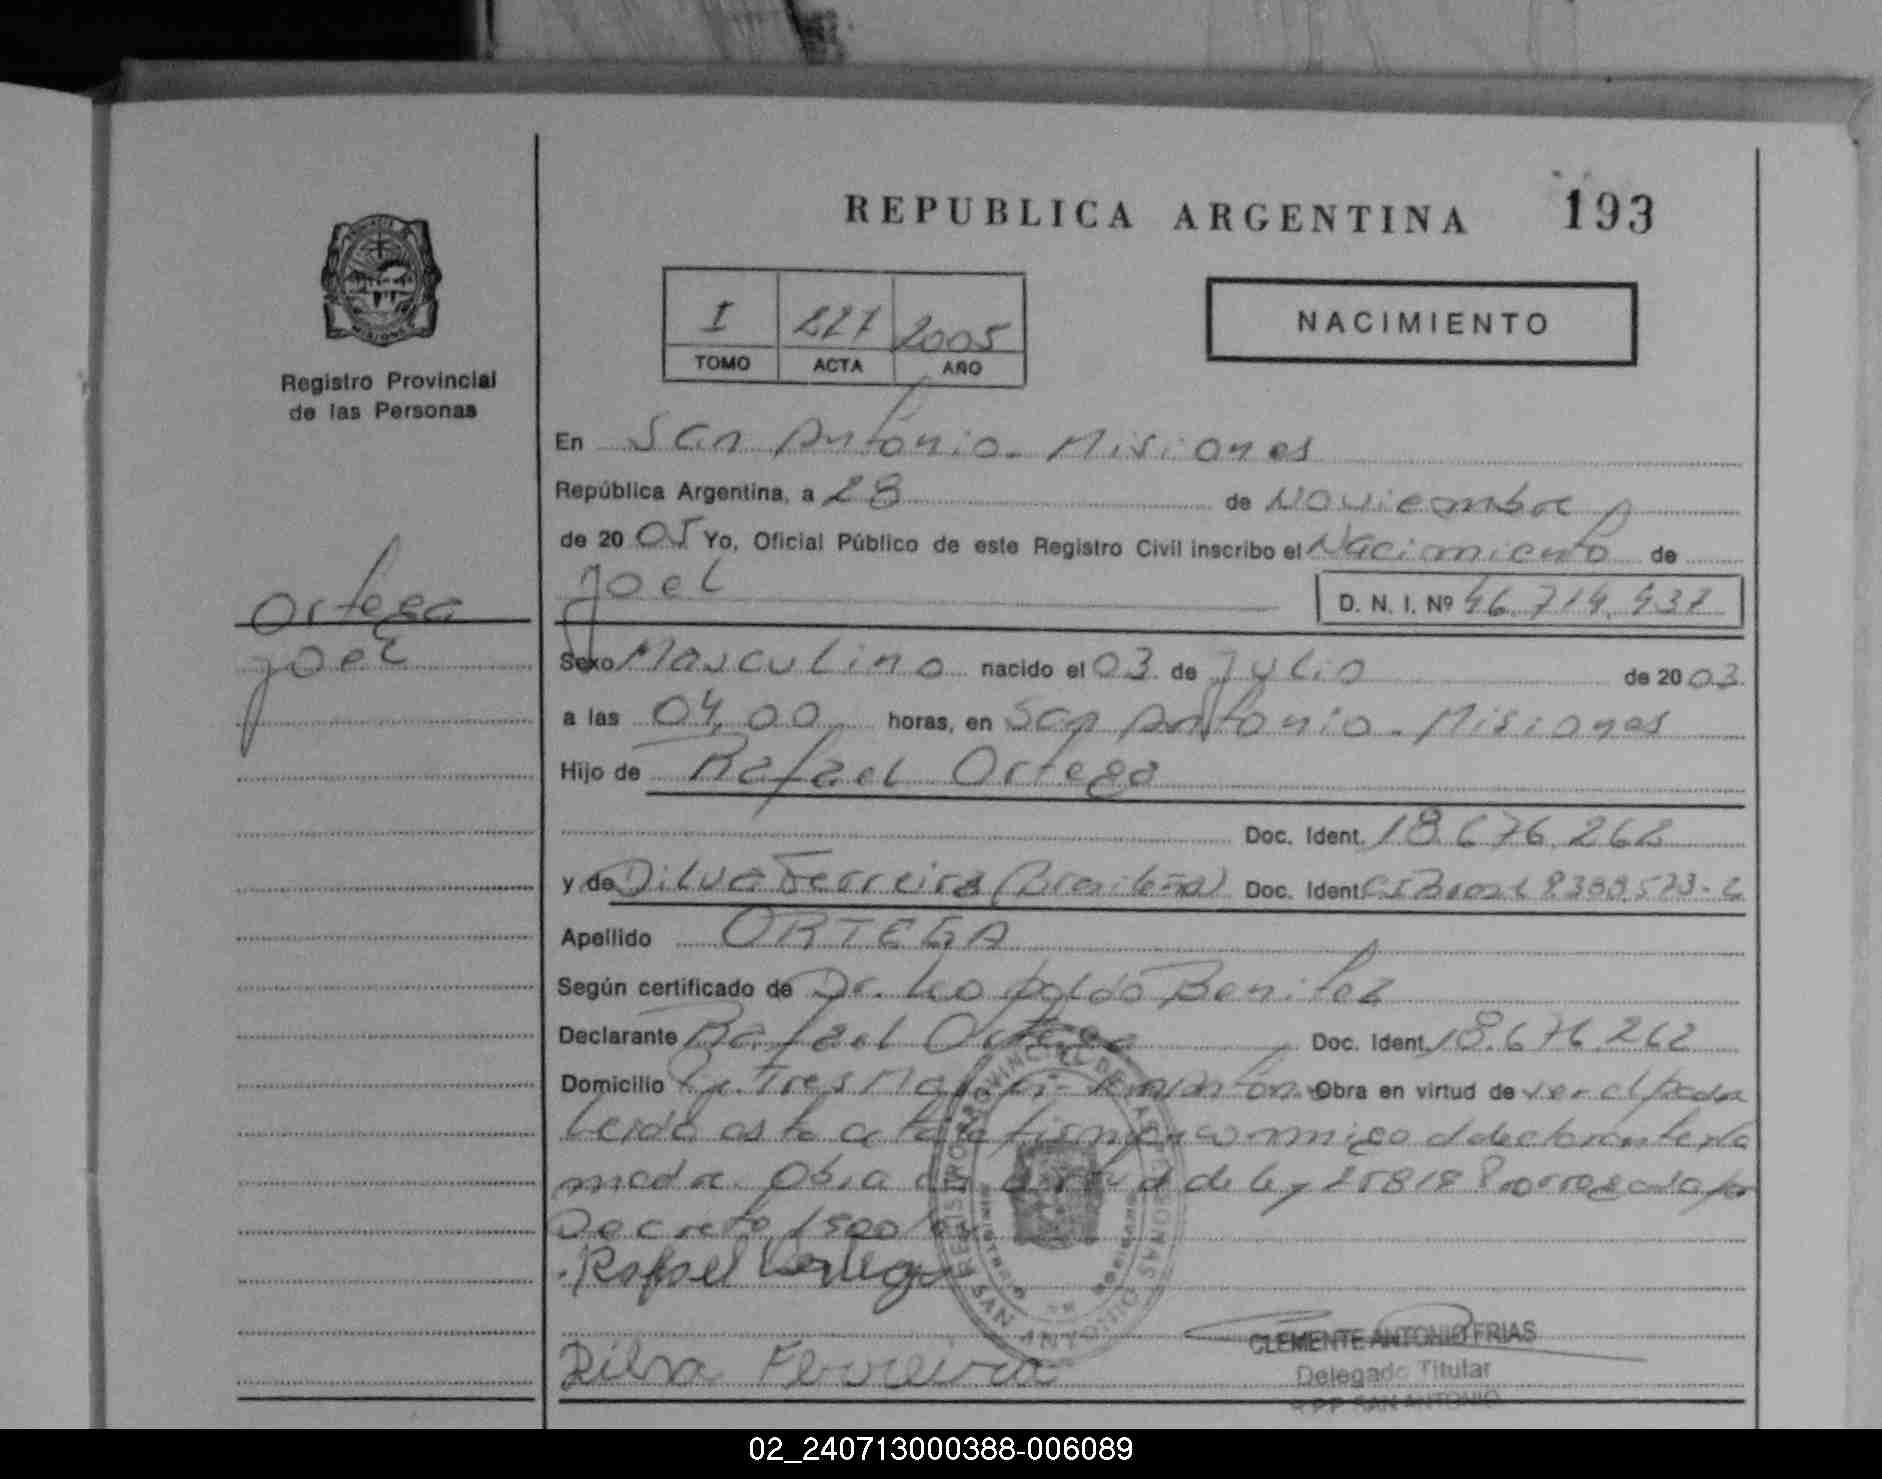 REPUBLICA ARGENTINA 193
I 227 2005
TOMO ACTA AÑO
NACIMIENTO
Registro Provincial
de las Personas
Ortega
Joel
En San Antonio - Misiones
República Argentina, a 28 de Noviembre
de 2005 Yo, Oficial Público de este Registro Civil inscribo el Nacimiento de
Joel D. N. I. Nº 46.714.437
Sexo Masculino nacido el 03 de Julio de 2003
a las 04,00 horas, en San Antonio - Misiones
Hijo de Rafael Ortega
Doc. Ident. 18.676.262
y de Dilva Ferreira (Brasileña) Doc. Ident. CI Brasil
Apellido ORTEGA
Según certificado de Dr. Leopoldo Benitez
Declarante Rafael Ortega Doc. Ident. 18.676.262
Domicilio Tres San Anton. Obra en virtud de ser el padre
Leida esta acta la firman conmigo el declarante y la
madre. Obra en virtud de ley 25818 Prorrogada por
Decreto 1500
Rafael Ortega
Dilva Ferreira
REGISTRO PROVINCIAL DE LAS PERSONAS
SAN ANTONIO
CLEMENTE ANTONIO FRIAS
Delegado Titular
R.P.P. SAN ANTONIO
02_240713000388-006089